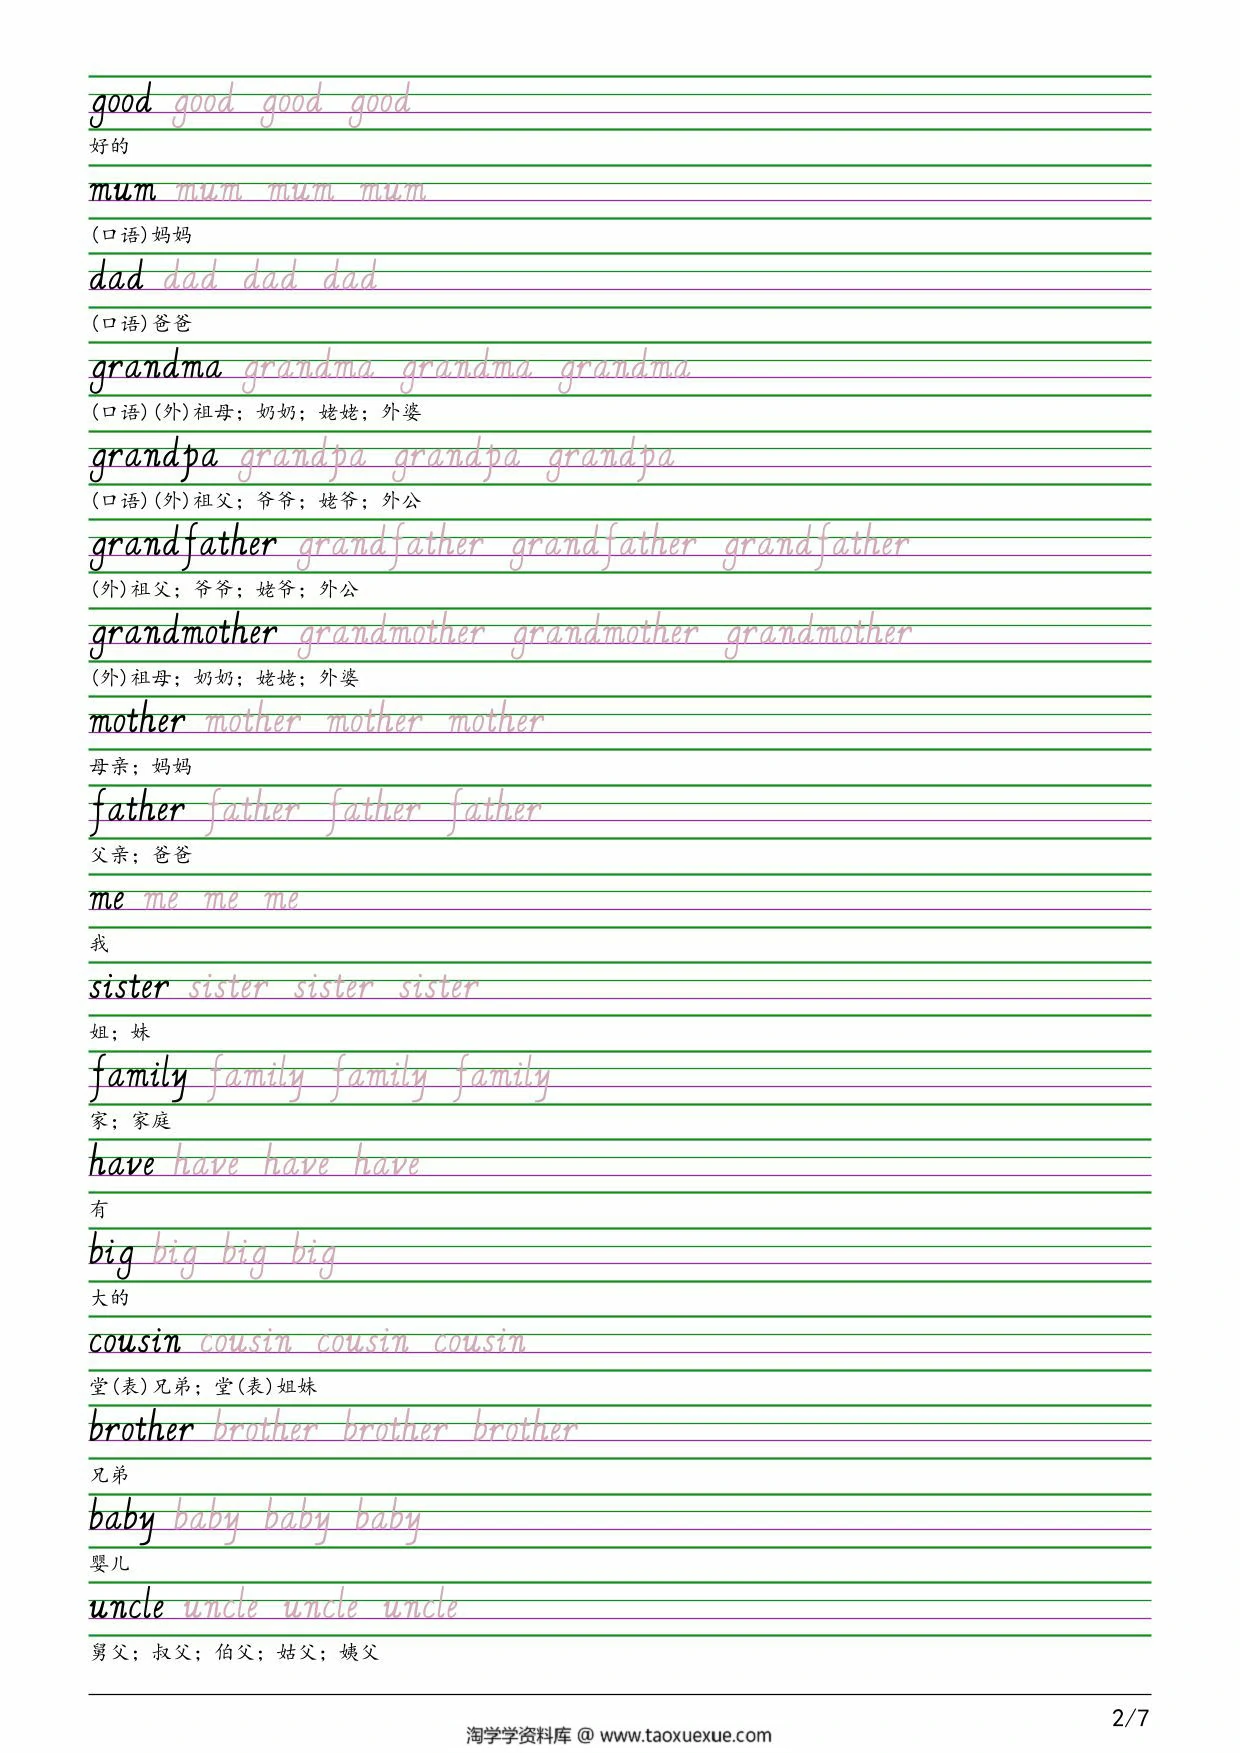 good good good good
好的
mum mum mum mum
(口语)妈妈
dad dad dad dad
(口语)爸爸
grandma grandma grandma grandma
(口语)(外)祖母；奶奶；姥姥；外婆
grandpa grandpa grandpa grandpa
(口语)(外)祖父；爷爷；姥爷；外公
grandfather grandfather grandfather grandfather
(外)祖父；爷爷；姥爷；外公
grandmother grandmother grandmother grandmother
(外)祖母；奶奶；姥姥；外婆
mother mother mother mother
母亲；妈妈
father father father father
父亲；爸爸
me me me me
我
sister sister sister sister
姐；妹
family family family family
家；家庭
have have have have
有
big big big big
大的
cousin cousin cousin cousin
堂(表)兄弟；堂(表)姐妹
brother brother brother brother
兄弟
baby baby baby baby
婴儿
uncle uncle uncle uncle
舅父；叔父；伯父；姑父；姨父
2/7
淘学学资料库 @ www.taoxuexue.com